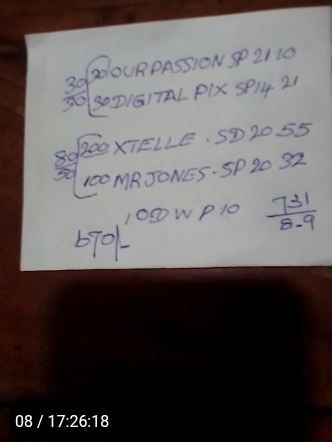 30 [20 OUR PASSION SP 21 10
30 [30 DIGITAL PIX SP 14 21
80 [200 XTELLE - SD 20 55
50 [100 MR JONES - SP 20 32
10 SD W P 10 731
8-9
670/-
08 / 17:26:18